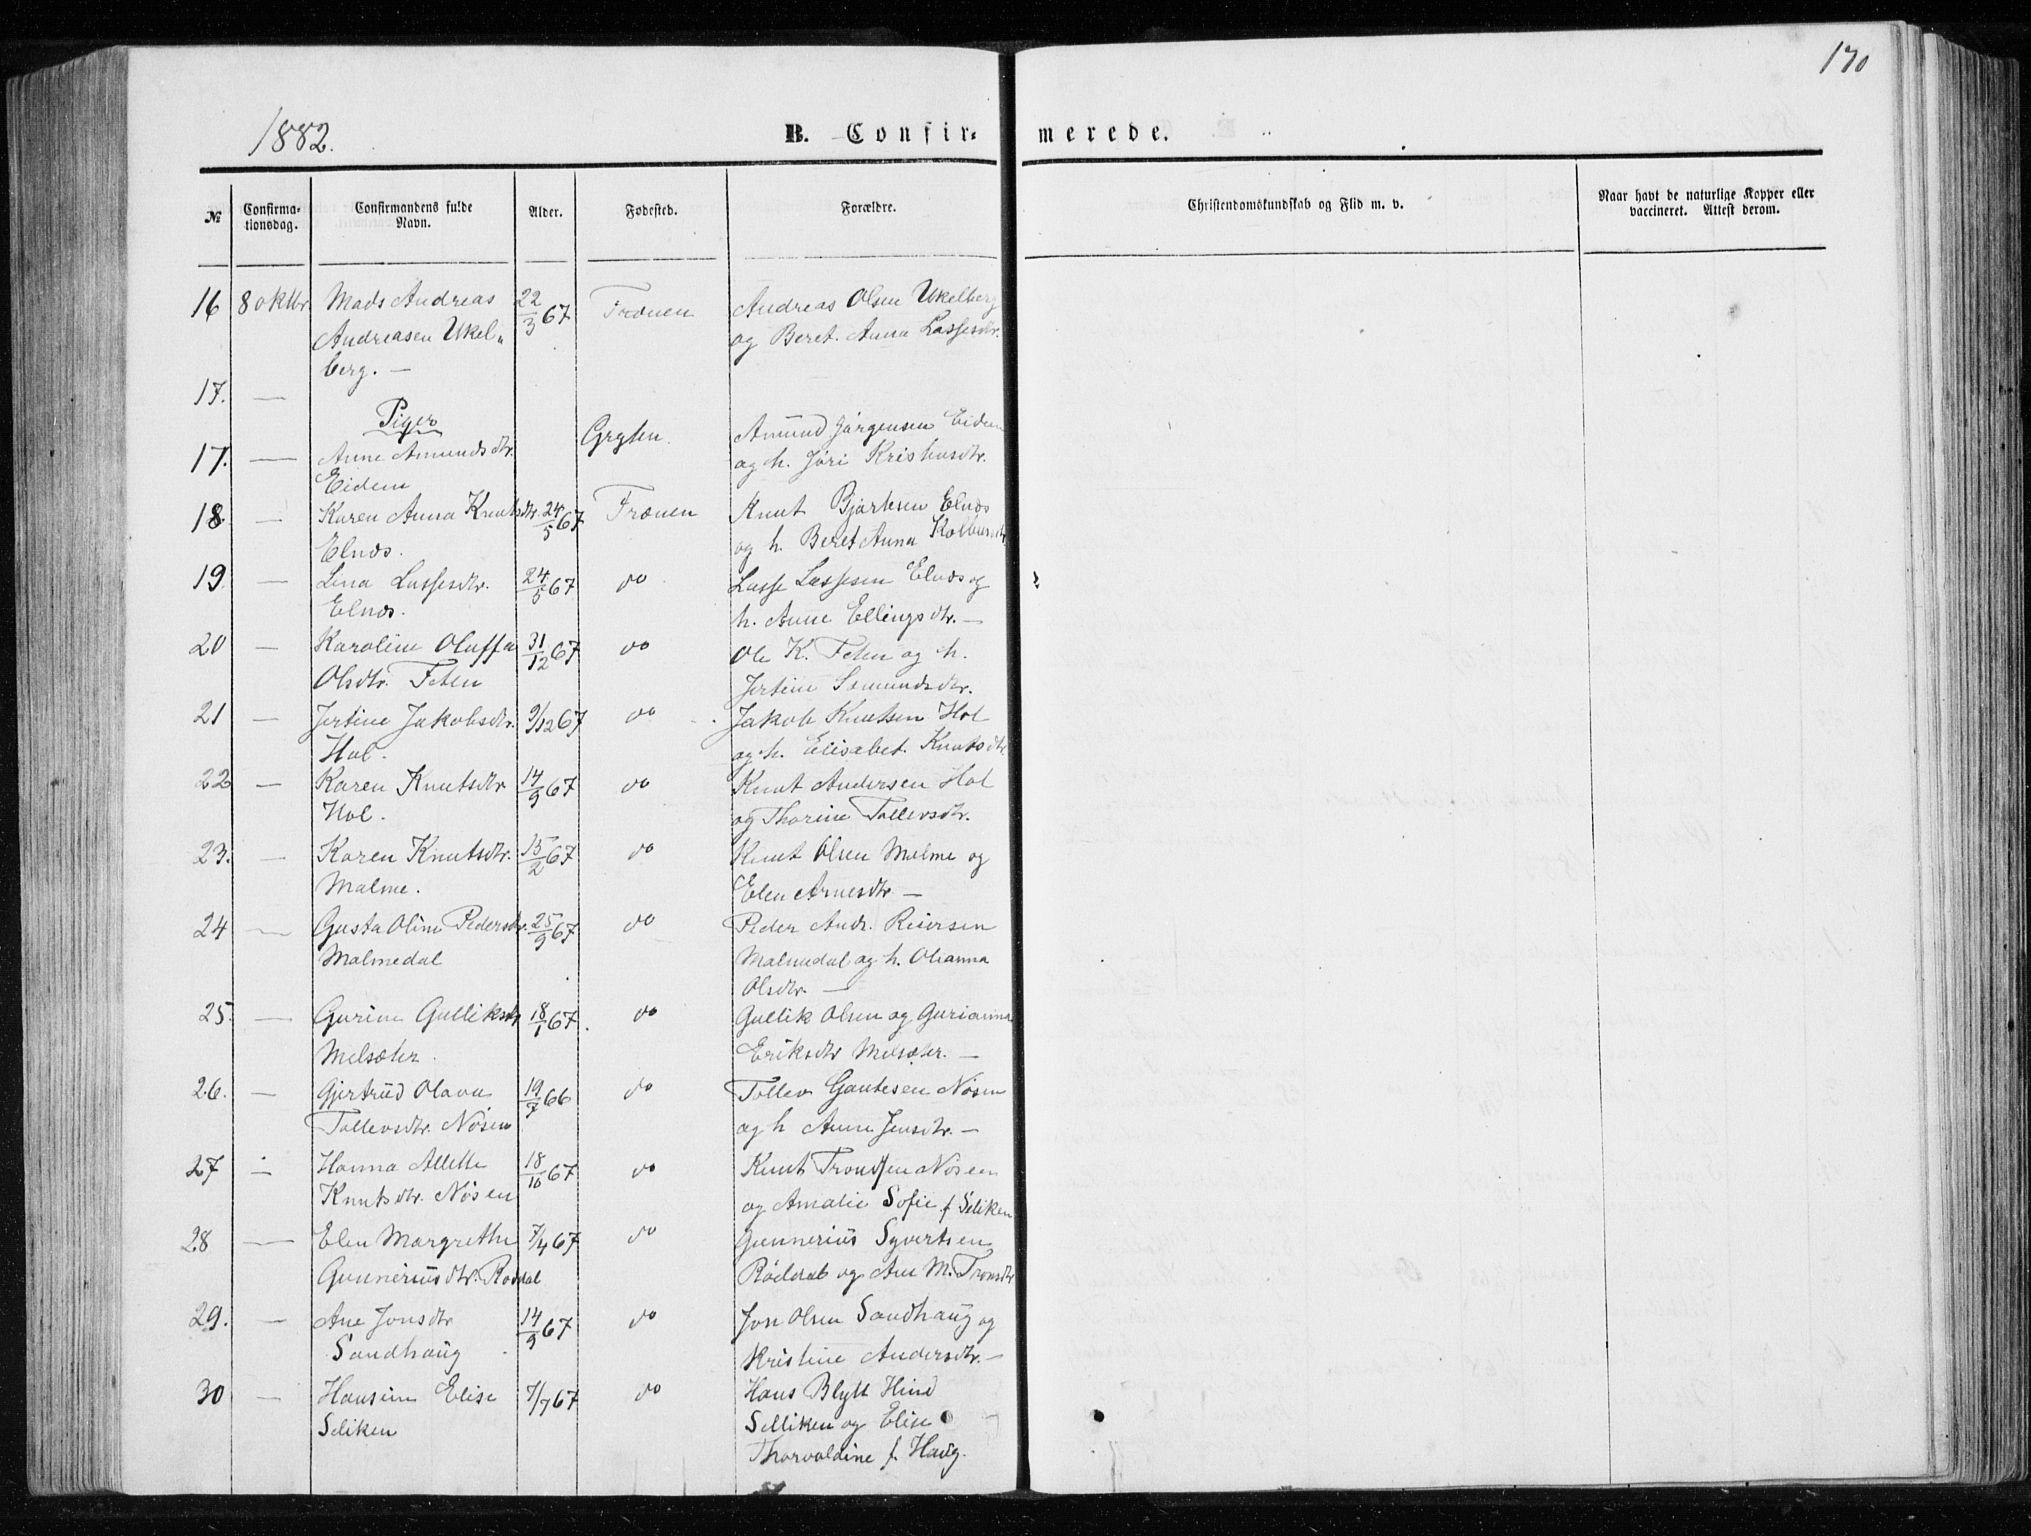 170
1882.
B. Confir-merede.
№
Confirma-tionsdag.
Confirmandens fulde Navn.
Alder.
Fødested.
Forældre.
Christendomskundskab og Flid m. v.
Naar havt de naturlige Kopper eller vaccineret. Attest derom.
16 8 oktbr. Mads Andreas 22/3 67 Frænen Andreas Olsen Ukelberg
Andreasen Ukel„ og Beret Anna Lassesdtr.
berg. —
17. —
Piger
17. — Anne Amundsdtr. Grytten Amund Jørgensen Eidem
Eidem og h. Jøri Kristensdtr.
18. — Karen Anna Knutsdtr. 24/5 67 Frænen Knut Bjørtesen Elnæs
Elnæs. og h. Beret Anna
19 — Lina Lassesdtr. 24/5 67 do Lasse Lassesen Elnæs og
Elnæs. h. Anne Ellingsdtr. —
20 — Karoline Oluffa 31/12 67 do Ole K. Feten og h.
Olsdtr. Feten Jertine Samundsdtr.
21 — Jertine Jakobsdtr. 9/12 67 do Jakob Knutsen Hol
Hol. og h. Elisabet Knutsdtr
22 — Karen Knutsdtr 14/9 67 do Knut Andersen Hol
Hol. og Thorine Tollevsdtr.
23. — Karen Knutsdtr. 15/2 67 do Knut Olsen Malme og
Malme. Elen Arnesdtr —
24 — Gusta Oline Pedersdtr. 25/9 67 do Peder Andr. Reiersen
Malmedal Malmedal og h. Olianna
Olsdtr. —
25. — Gurine Gulliksdtr 18/1 67. do Gullik Olsen og Gurianna
Melsæter. Eriksdtr Melsæter. —
26. — Gjertrud Olava 19/7 66 do Tollev Gautesen Nøsen
Tollevsdtr. Nøsen og h Anne Jensdtr. —
27 — Hanna Alette 18/10 67 do Knut Trondsen Nøsen
Knutsdtr. Nøsen og Amalie Sofie f. Seliken
28 — Elen Margrethe 7/4 67 do Gunnerius Syvertsen
Gunneriusdtr. Rødal Rødal og Ane M. Tronsdtr
29. — Ane Jonsdtr 14/9 67 do Jon Olsen Sandhaug og
Sandhaug Kristine Andersdtr. —
30 — Hansine Elise 7/7 67 do Hans Blytt Hind
Seliken Selliken og Elise
Thorvaldine f. Haug.